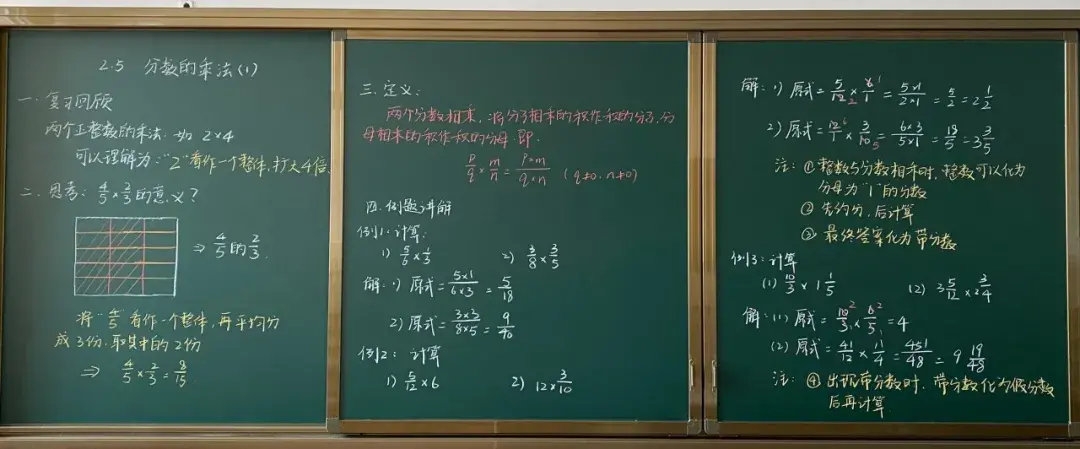 2.5 分数的乘法(1)
一. 复习回顾
两个正整数的乘法. 如 2×4
可以理解为:"2"看作一个整体, 扩大4倍.
二. 思考: 4/5 × 2/3 的意义?
⇒ 4/5 的 2/3.
将"4/5"看作一个整体, 再平均分
成3份. 取其中的2份
⇒ 4/5 × 2/3 = 8/15
三. 定义:
两个分数相乘, 将分子相乘的积作积的分子, 分
母相乘的积作积的分母. 即
p/q × m/n = p×m/q×n (q≠0. n≠0)
四. 例题讲解
例1: 计算:
1) 5/6 × 1/3 2) 3/8 × 3/5
解: 1) 原式 = 5×1/6×3 = 5/18
2) 原式 = 3×3/8×5 = 9/40
例2: 计算
1) 5/12 × 6 2) 12 × 3/10
解: 1) 原式 = 5/12 2 × 6/1 1 = 5×1/2×1 = 5/2 = 2 1/2
2) 原式 = 12/1 6 × 3/10 5 = 6×3/5×1 = 18/5 = 3 3/5
注: ① 整数与分数相乘时, 整数可以化为
分母为"1"的分数
② 先约分, 后计算
③ 最终答案化为带分数
例3: 计算
(1) 10/3 × 1 1/5 (2) 3 5/12 × 2 3/4
解: (1) 原式 = 10/3 2 × 6/5 2 = 4
(2) 原式 = 41/12 × 11/4 = 451/48 = 9 19/48
注: ④ 出现带分数时, 带分数化为假分数
后再计算